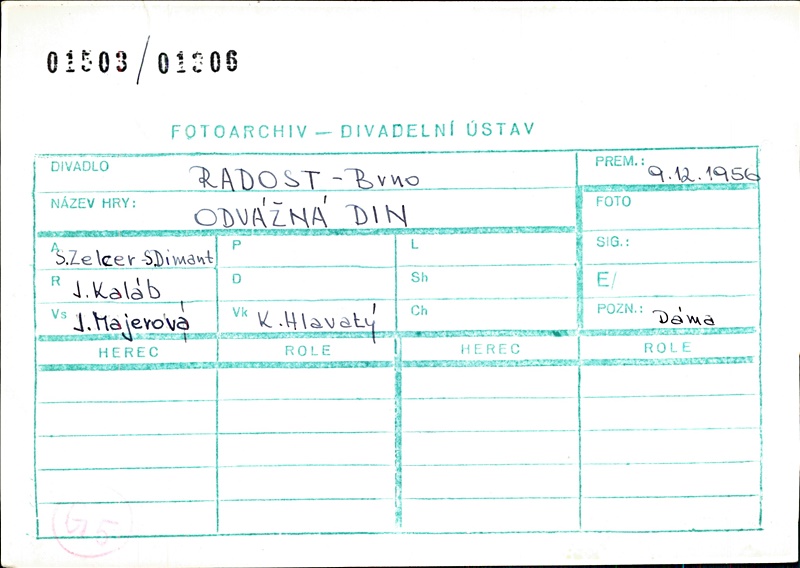 01503/01306
FOTOARCHIV — DIVADELNÍ ÚSTAV
DIVADLO RADOST - Brno PREM.: 9.12.1956
NÁZEV HRY: ODVÁŽNÁ DIN FOTO
A S.Zelcer SDimant P L SIG.:
R J.Kaláb D Sh E/
Vs J.Majerová Vk K.Hlavatý Ch POZN.: Dáma
HEREC ROLE HEREC ROLE